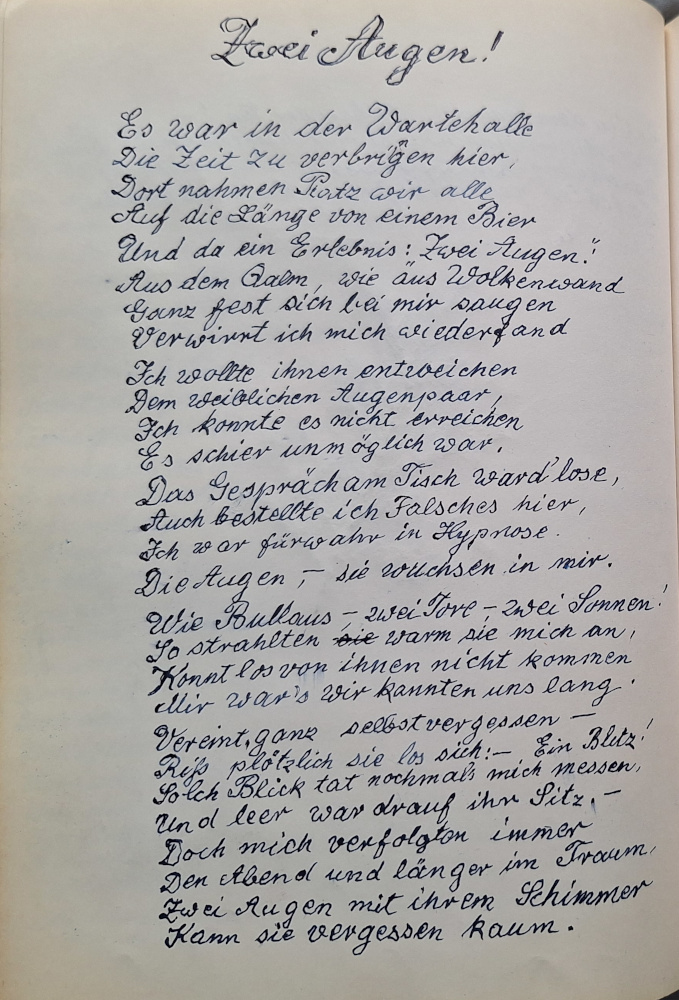 Zwei Augen!
Es war in der Wartehalle
Die Zeit zu verbrigen hier,
Dort nahmen Platz wir alle
Auf die Länge von einem Bier
Und da ein Erlebnis: „Zwei Augen!"
Aus dem Qalm, wie aus Wolkenwand
Ganz fest sich bei mir saugen
Verwirrt ich mich wiederfand
Ich wollte ihnen entweichen
Dem weiblichen Augenpaar,
Ich konnte es nicht erreichen
Es schier unmöglich war.
Das Gespräch am Tisch ward' lose,
Auch bestellte ich Falsches hier,
Ich war fürwahr in Hypnose.
Die Augen, – sie wuchsen in mir.
Wie Bullaus – zwei Tore – zwei Sonnen!
So strahlten sie warm sie mich an,
Konnt los von ihnen nicht kommen
Mir war's wir kannten uns lang.
Vereint, ganz selbstvergessen –
Riß plötzlich sie los sich: – Ein Blitz!
Solch Blick tat nochmals mich messen,
Und leer war drauf ihr Sitz. –
Doch mich verfolgten immer
Den Abend und länger im Traum,
Zwei Augen mit ihrem Schimmer
Kann sie vergessen kaum.